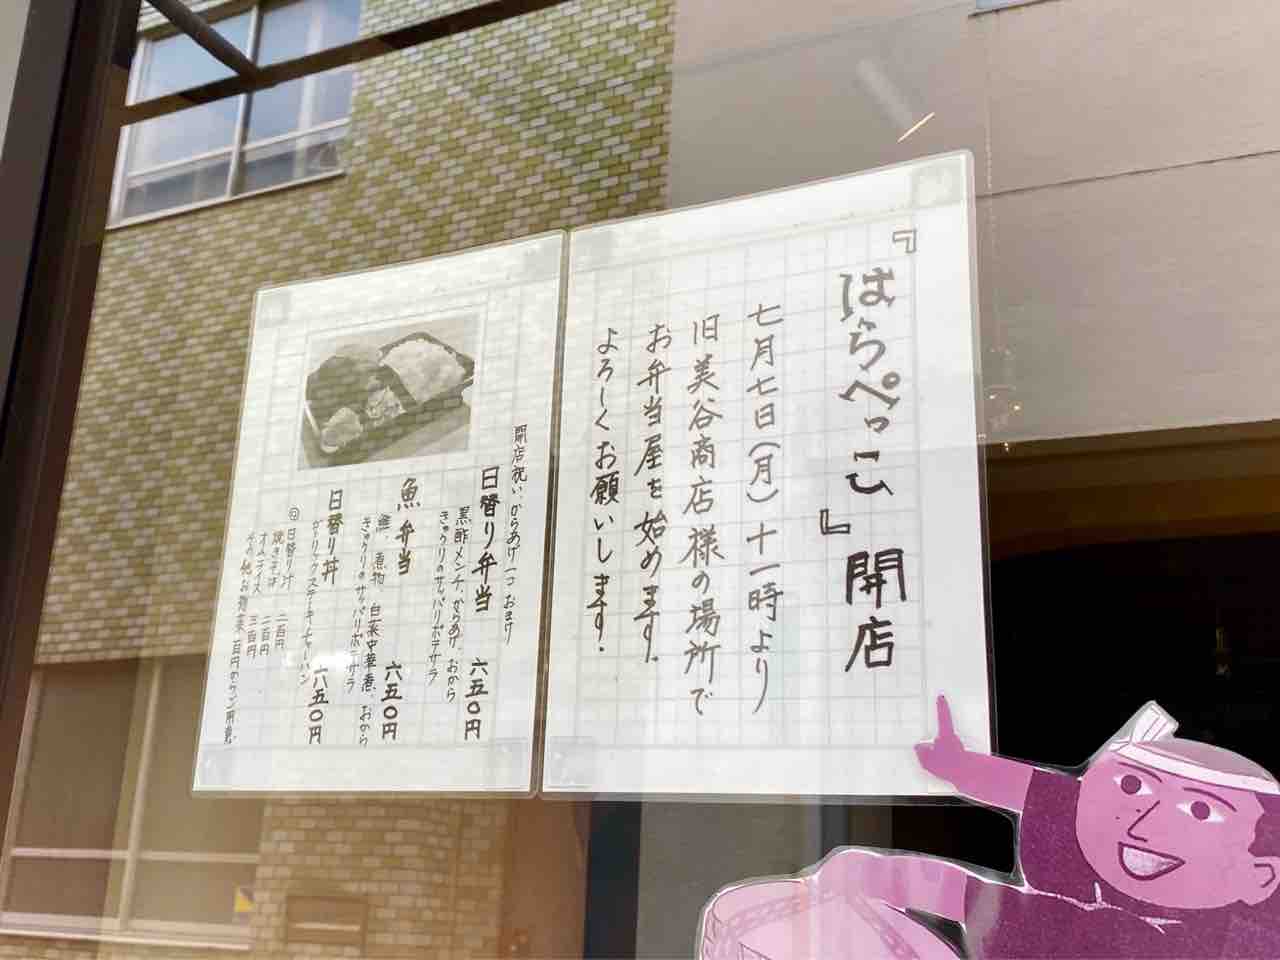 『はらぺっこ』開店
七月七日(月)十一時より
旧美谷商店様の場所で
お弁当屋を始めます.
よろしくお願いします.
開店祝い、からあげ一コおまけ
日替り弁当 六五〇円
黒酢メンチ、からあげ、おから
きゅうりのサッパリポテサラ
魚弁当 六五〇円
鮭、煮物、白菜中華煮、おから
きゅうりのサッパリポテサラ
日替り丼 六五〇円
ガーリックステーキチャーハン
◎日替り汁 二百円
焼きそば 二百円
オムライス 三百円
その他お惣菜 百円からご用意.